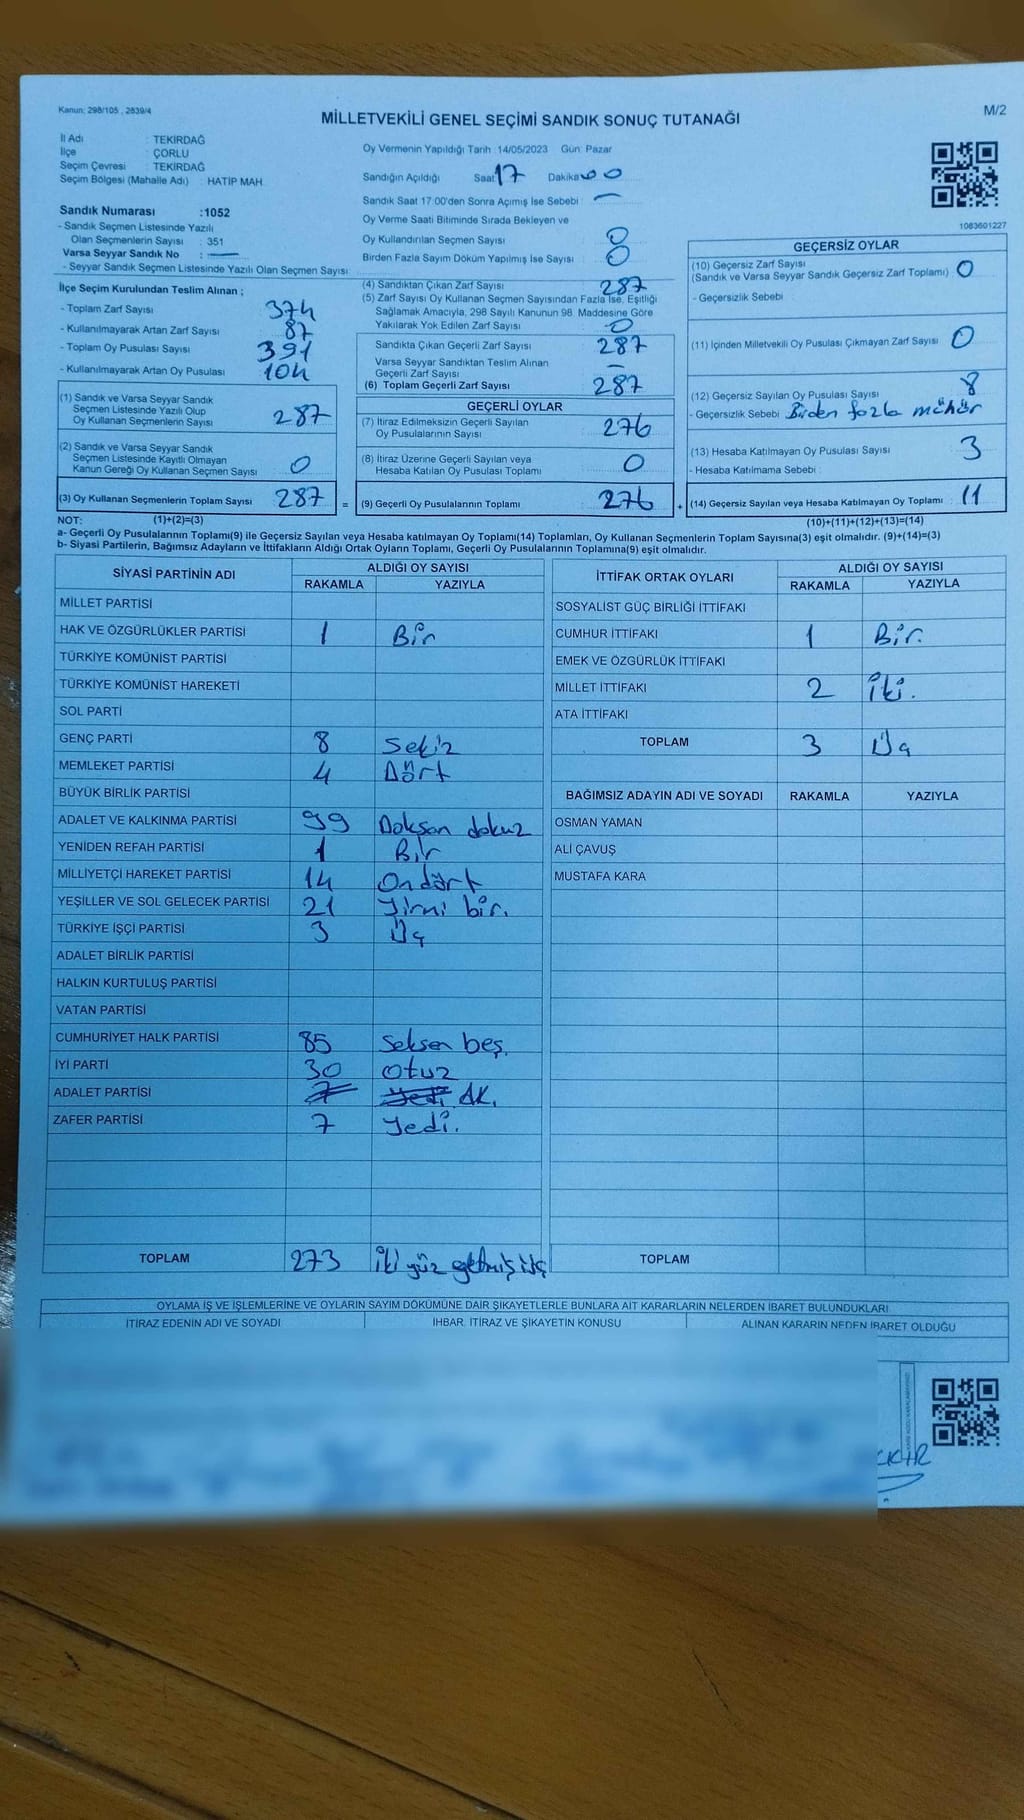 Kanun: 298/105 , 2839/4
MİLLETVEKİLİ GENEL SEÇİMİ SANDIK SONUÇ TUTANAĞI
M/2
İl Adı : TEKİRDAĞ
İlçe : ÇORLU
Seçim Çevresi : TEKİRDAĞ
Seçim Bölgesi (Mahalle Adı) : HATİP MAH.
Sandık Numarası :1052
- Sandık Seçmen Listesinde Yazılı
Olan Seçmenlerin Sayısı : 351
Varsa Seyyar Sandık No :
- Seyyar Sandık Seçmen Listesinde Yazılı Olan Seçmen Sayısı
İlçe Seçim Kurulundan Teslim Alınan ;
- Toplam Zarf Sayısı 374
- Kullanılmayarak Artan Zarf Sayısı 87
- Toplam Oy Pusulası Sayısı 391
- Kullanılmayarak Artan Oy Pusulası 104
(1) Sandık ve Varsa Seyyar Sandık
Seçmen Listesinde Yazılı Olup
Oy Kullanan Seçmenlerin Sayısı 287
(2) Sandık ve Varsa Seyyar Sandık
Seçmen Listesinde Kayıtlı Olmayan
Kanun Gereği Oy Kullanan Seçmen Sayısı 0
(3) Oy Kullanan Seçmenlerin Toplam Sayısı 287 =
Oy Vermenin Yapıldığı Tarih :14/05/2023 Gün: Pazar
Sandığın Açıldığı Saat 17 Dakika 00
Sandık Saat 17:00'den Sonra Açımış İse Sebebi : —
Oy Verme Saati Bitiminde Sırada Bekleyen ve
Oy Kullandırılan Seçmen Sayısı 0
Birden Fazla Sayım Döküm Yapılmış İse Sayısı 0
(4) Sandıktan Çıkan Zarf Sayısı 287
(5) Zarf Sayısı Oy Kullanan Seçmen Sayısından Fazla İse, Eşitliği
Sağlamak Amacıyla, 298 Sayılı Kanunun 98. Maddesine Göre
Yakılarak Yok Edilen Zarf Sayısı 0
Sandıkta Çıkan Geçerli Zarf Sayısı 287
Varsa Seyyar Sandıktan Teslim Alınan
Geçerli Zarf Sayısı —
(6) Toplam Geçerli Zarf Sayısı 287
GEÇERLİ OYLAR
(7) İtiraz Edilmeksizin Geçerli Sayılan
Oy Pusulalarının Sayısı 276
(8) İtiraz Üzerine Geçerli Sayılan veya
Hesaba Katılan Oy Pusulası Toplamı 0
(9) Geçerli Oy Pusulalarının Toplamı 276 +
1083601227
GEÇERSİZ OYLAR
(10) Geçersiz Zarf Sayısı
(Sandık ve Varsa Seyyar Sandık Geçersiz Zarf Toplamı) 0
- Geçersizlik Sebebi :
(11) İçinden Milletvekili Oy Pusulası Çıkmayan Zarf Sayısı 0
(12) Geçersiz Sayılan Oy Pusulası Sayısı 8
- Geçersizlik Sebebi : Birden fazla mühür
(13) Hesaba Katılmayan Oy Pusulası Sayısı 3
- Hesaba Katılmama Sebebi :
(14) Geçersiz Sayılan veya Hesaba Katılmayan Oy Toplamı 11
NOT: (1)+(2)=(3) (10)+(11)+(12)+(13)=(14)
a- Geçerli Oy Pusulalarının Toplamı(9) ile Geçersiz Sayılan veya Hesaba katılmayan Oy Toplamı(14) Toplamları, Oy Kullanan Seçmenlerin Toplam Sayısına(3) eşit olmalıdır. (9)+(14)=(3)
b- Siyasi Partilerin, Bağımsız Adayların ve İttifakların Aldığı Ortak Oyların Toplamı, Geçerli Oy Pusulalarının Toplamına(9) eşit olmalıdır.
SİYASİ PARTİNİN ADI ALDIĞI OY SAYISI
RAKAMLA YAZIYLA
MİLLET PARTİSİ
HAK VE ÖZGÜRLÜKLER PARTİSİ 1 Bir
TÜRKİYE KOMÜNİST PARTİSİ
TÜRKİYE KOMÜNİST HAREKETİ
SOL PARTİ
GENÇ PARTİ 8 Sekiz
MEMLEKET PARTİSİ 4 Dört
BÜYÜK BİRLİK PARTİSİ
ADALET VE KALKINMA PARTİSİ 99 Doksan dokuz
YENİDEN REFAH PARTİSİ 1 Bir
MİLLİYETÇİ HAREKET PARTİSİ 14 On dört
YEŞİLLER VE SOL GELECEK PARTİSİ 21 Yirmi bir.
TÜRKİYE İŞÇİ PARTİSİ 3 Üç
ADALET BİRLİK PARTİSİ
HALKIN KURTULUŞ PARTİSİ
VATAN PARTİSİ
CUMHURİYET HALK PARTİSİ 85 Seksen beş.
İYİ PARTİ 30 Otuz
ADALET PARTİSİ 7 Yedi AK.
ZAFER PARTİSİ 7 Yedi.
TOPLAM 273 İki yüz yetmiş üç
İTTİFAK ORTAK OYLARI ALDIĞI OY SAYISI
RAKAMLA YAZIYLA
SOSYALİST GÜÇ BİRLİĞİ İTTİFAKI
CUMHUR İTTİFAKI 1 Bir.
EMEK VE ÖZGÜRLÜK İTTİFAKI
MİLLET İTTİFAKI 2 İki.
ATA İTTİFAKI
TOPLAM 3 Üç
BAĞIMSIZ ADAYIN ADI VE SOYADI RAKAMLA YAZIYLA
OSMAN YAMAN
ALİ ÇAVUŞ
MUSTAFA KARA
TOPLAM
OYLAMA İŞ VE İŞLEMLERİNE VE OYLARIN SAYIM DÖKÜMÜNE DAİR ŞİKAYETLERLE BUNLARA AİT KARARLARIN NELERDEN İBARET BULUNDUKLARI
İTİRAZ EDENİN ADI VE SOYADI İHBAR, İTİRAZ VE ŞİKAYETİN KONUSU ALINAN KARARIN NEDEN İBARET OLDUĞU